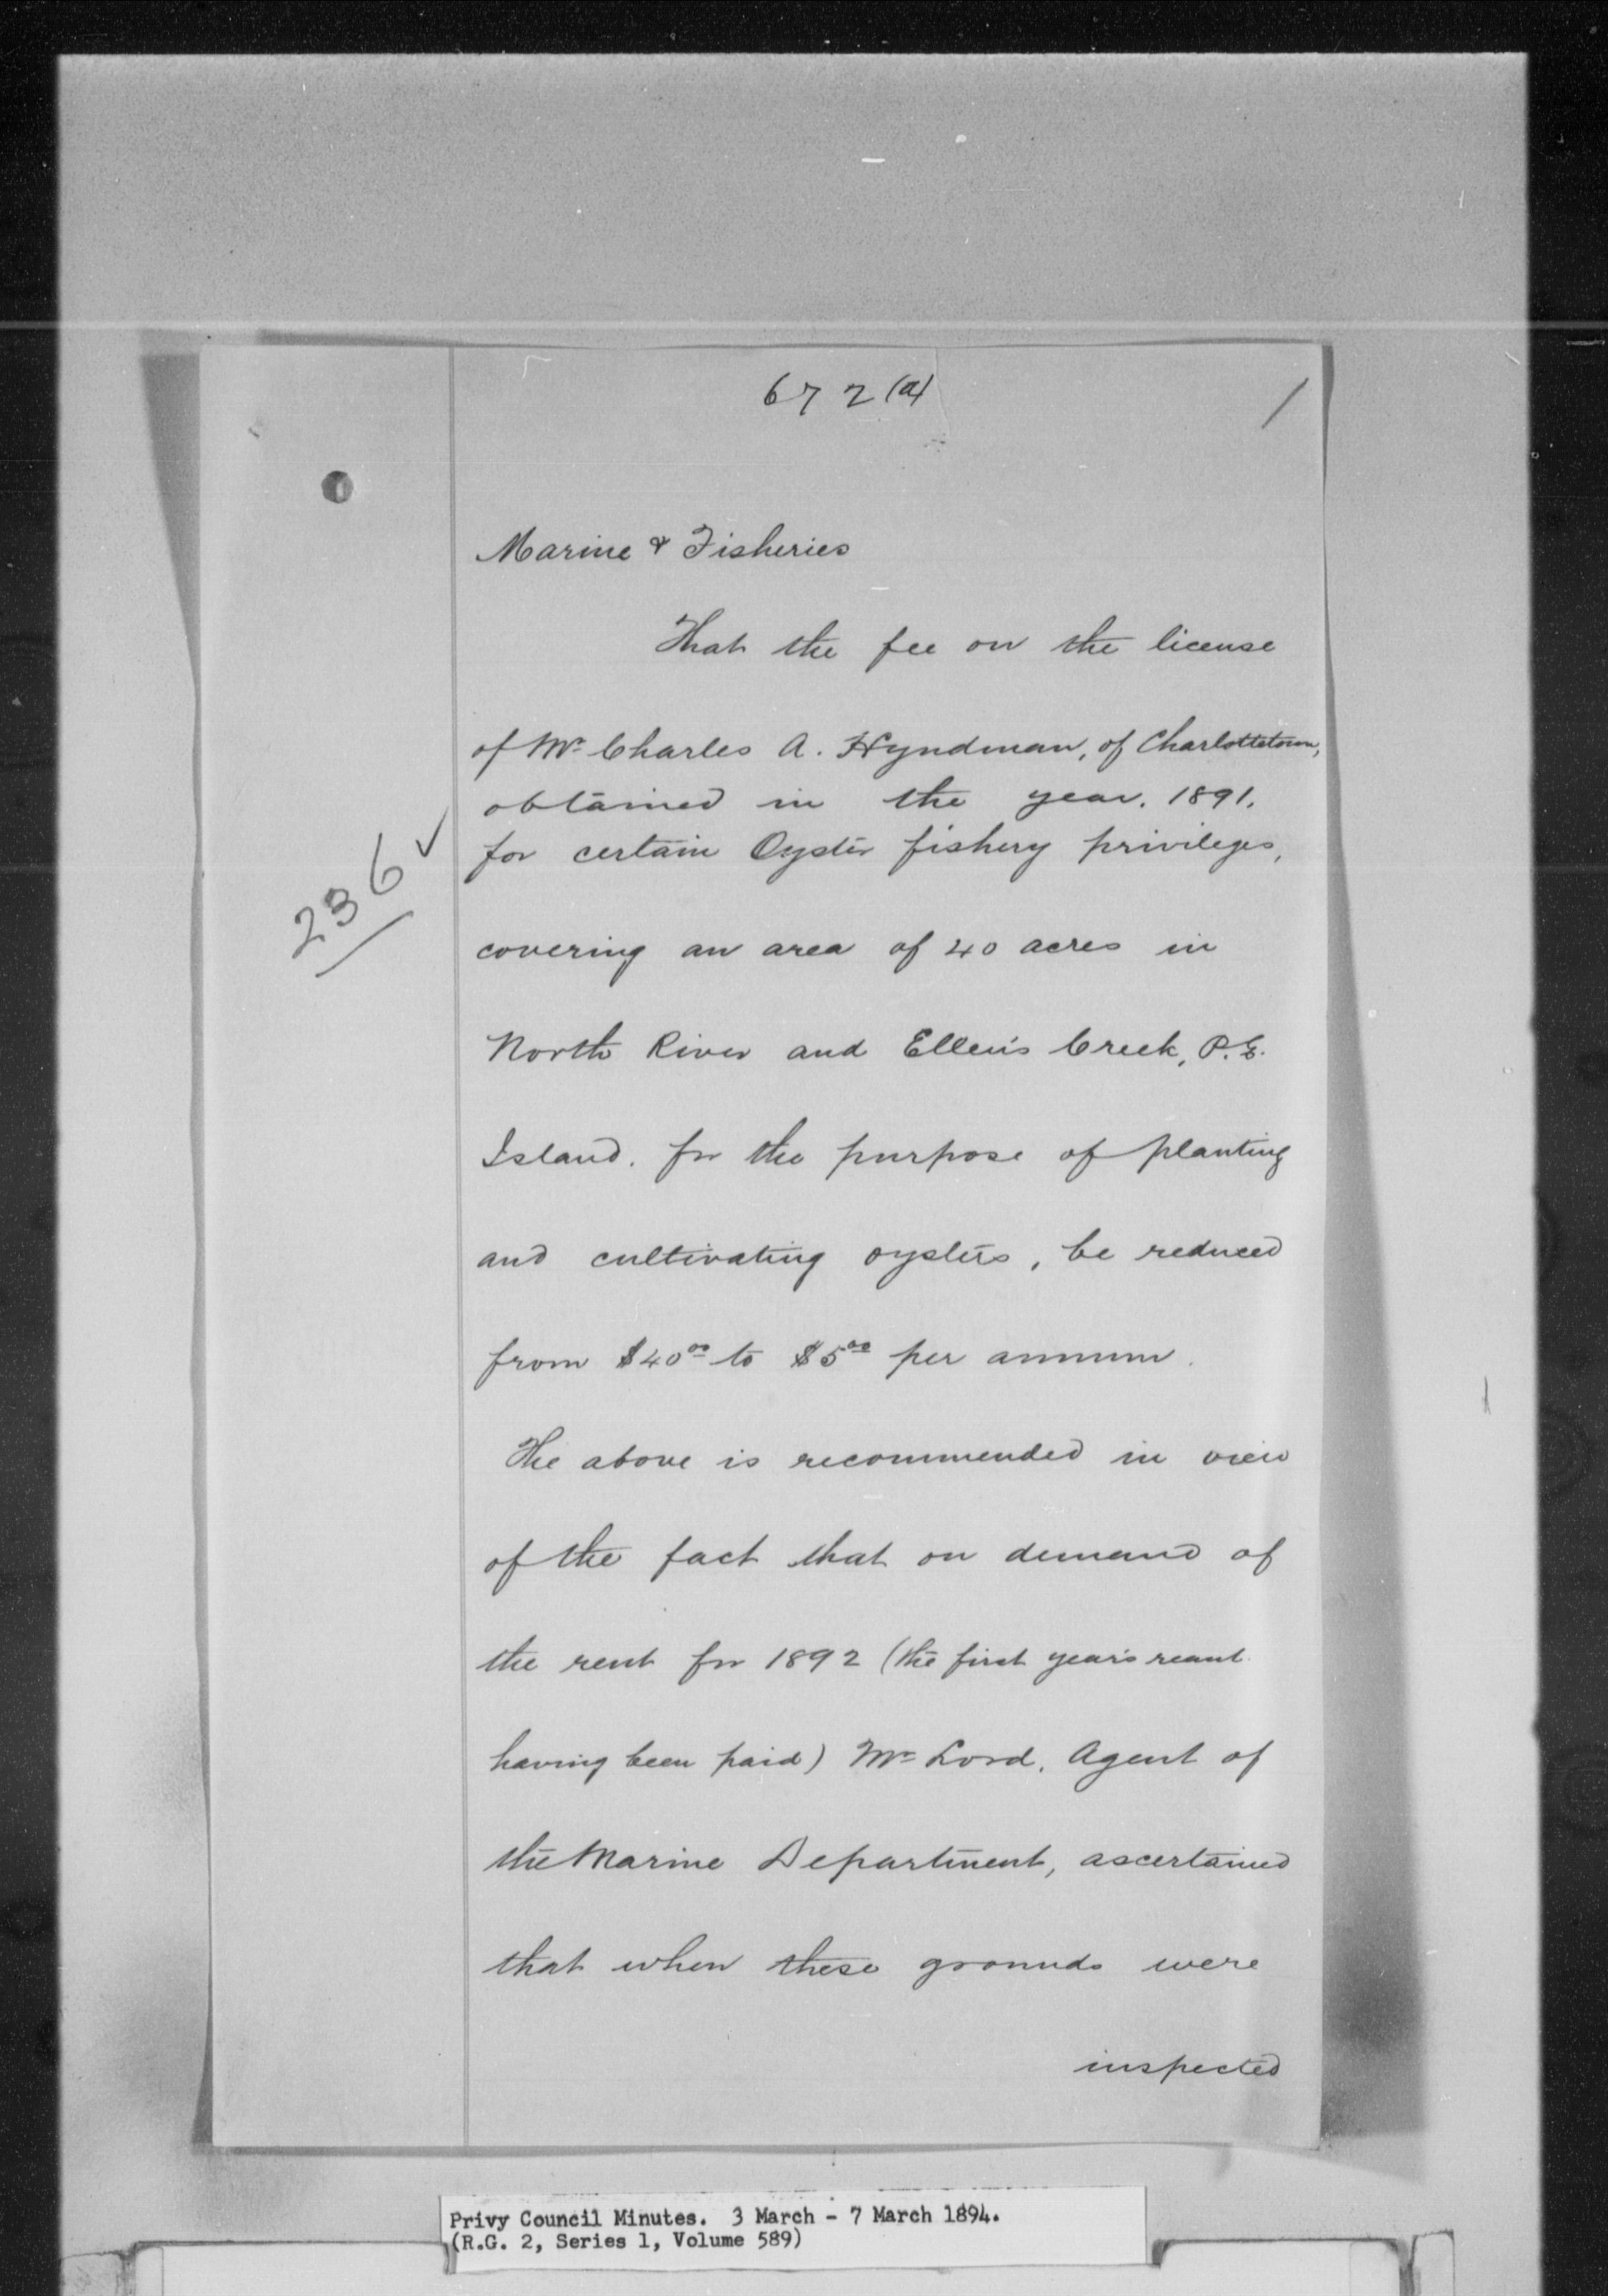 672 (a)
Marine & Fisheries
That the fee on the license
of Mr. Charles A. Hyndman, of Charlottetown,
obtained in the year. 1891.
for certain Oyster fishery privileges,
236 ✓
covering an area of 40 acres in
North River and Ellen's Creek, P.E.
Island. for the purpose of planting
and cultivating oysters, be reduced
from $40.00 to $5.00 per annum.
The above is recommended in view
of the fact that on demand of
the rent for 1892 (the first year's reant
having been paid) Mr Lord, Agent of
the Marine Department, ascertained
that when these grounds were
inspected
Privy Council Minutes. 3 March - 7 March 1894.
(R.G. 2, Series 1, Volume 589)